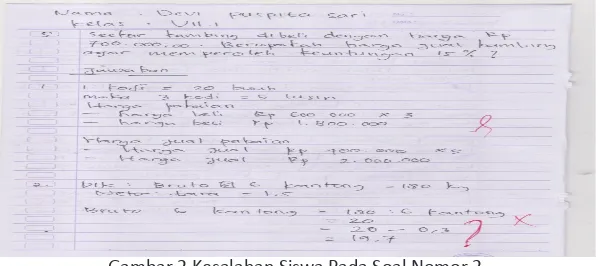 Nama : Devi puspita sari
Kelas : VII.1
5. Seekor kambing dibeli dengan harga Rp
700.000,00. Berapakah harga jual kambing
agar memperoleh keuntungan 15 % ?
Jawaban
1. 1 kodi = 20 buah
maka 3 kodi = 5 lusin
Harga pakaian
- harga beli Rp 600 000 x 3
- harga beli Rp 1.800.000
Harga jual pakaian
- Harga jual Rp 400.000 x 5
- Harga jual Rp 2.000.000
2. Dik : Bruto 6 kantong = 180 kg
- 1,5
Bruto 6 kantong = 180 : 6 kantong
= 20
= 20 - 0,3
= 19,7
Gambar 2 Kesalahan Siswa Pada Soal Nomor 2